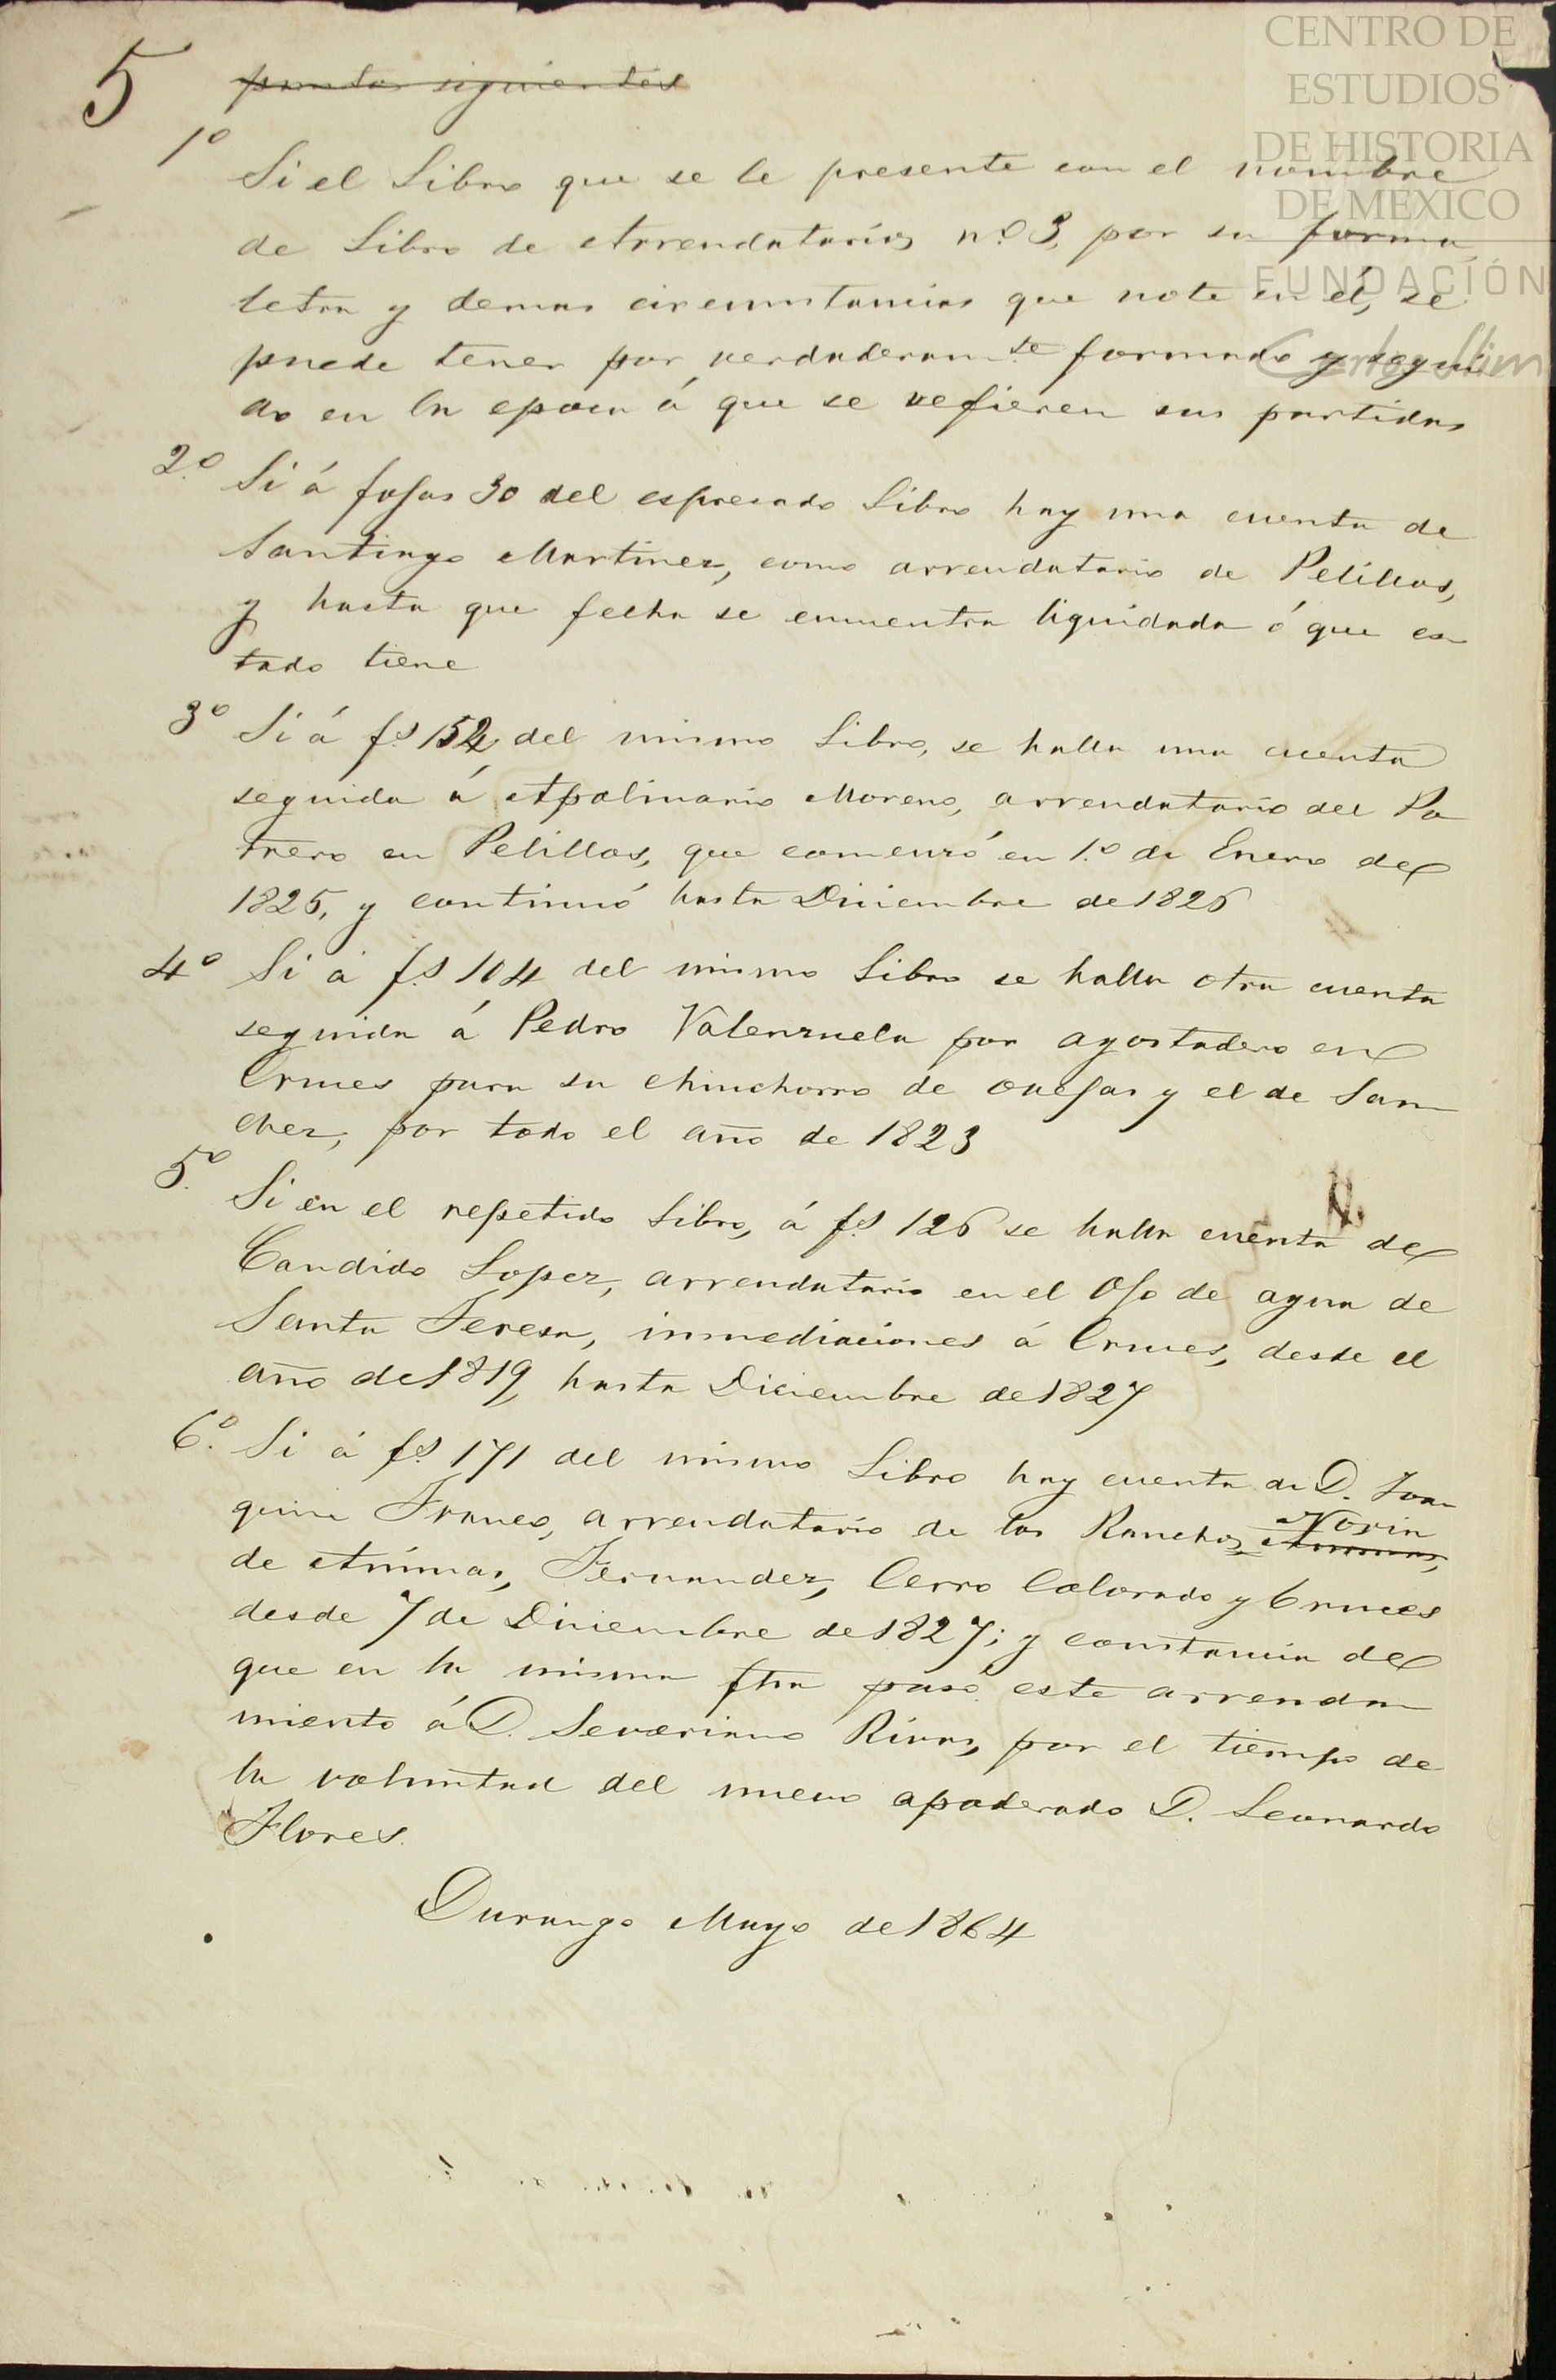 CENTRO DE
ESTUDIOS
DE HISTORIA
DE MEXICO
FUNDACIÓN
Carlos Slim
5
puntos siguientes
1º Si el Libro que se le presente con el nombre
de Libro de Arrendatarios nº 3, por su forma
letra y demas circunstancias que note en él, se
puede tener por verdaderamte formado y segui
do en la epoca á que se refieren sus partidas
2.º Si á fojas 30 del espresado Libro hay una cuenta de
Santiago Martinez, como arrendatario de Pelillos,
y hasta que fecha se encuentra liquidada ó que es
tado tiene
3º Si á fs 152, del mismo Libro, se halla una cuenta
seguida á Apolinario Moreno, arrendatario del Po
trero en Pelillos, que comenzó en 1.º de Enero de
1825, y continuó hasta Diciembre de 1826
4º Si á fs 104 del mismo Libro se halla otra cuenta
seguida á Pedro Valenzuela por agostadero en
Cruces para su chinchorro de ovejas y el de San
chez, por todo el año de 1823
5.º Si en el repetido Libro, á fs 126 se halla cuenta de
Candido Lopez, arrendatario en el Ojo de agua de
Santa Teresa, inmediaciones á Cruces, desde el
año de 1819, hasta Diciembre de 1827
6.º Si á fs 171 del mismo Libro hay cuenta de D. Joa
quin Franco, arrendatario de los Ranchos Animas, Noria
de Animas, Fernandez, Cerro Colorado y Cruces
desde 7 de Diciembre de 1827; y constancia de
que en la misma fha pasó este arrenda
miento á D. Severiano Rivas, por el tiempo de
la voluntad del nuevo apoderado D. Leonardo
Flores.
Durango Mayo de 1864